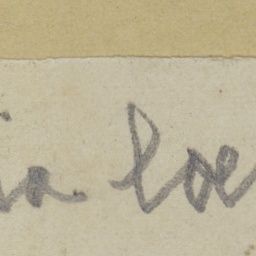 ia loe